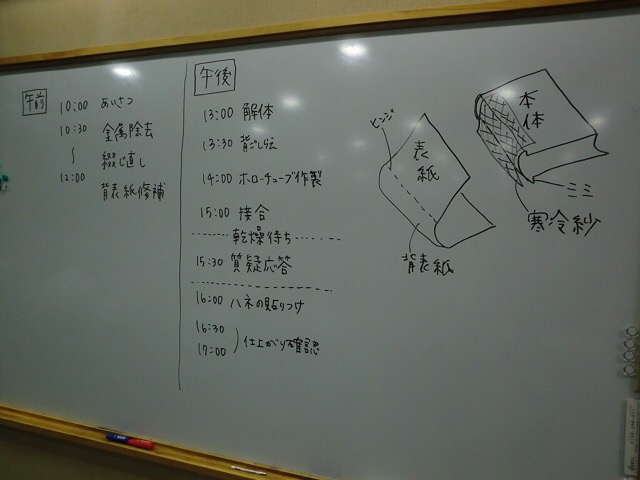 午前
10:00 あいさつ
10:30 金属除去
〜 綴じ直し
12:00
背表紙修補
午後
13:00 解体
13:30 背ごしらえ
14:00 ホローチューブ作製
15:00 接合
乾燥待ち
15:30 質疑応答
16:00 ハネの貼りつけ
16:30
17:00 )仕上がり確認
ヒンジ
表紙
背表紙
本体
ミミ
寒冷紗